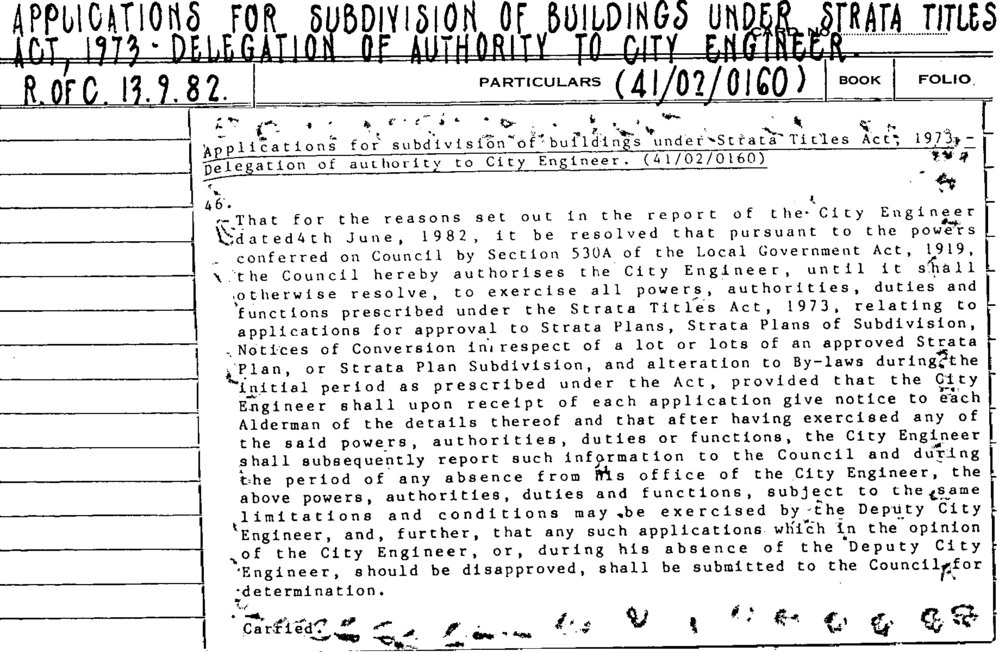 APPLICATIONS FOR SUBDIVISION OF BUILDINGS UNDER STRATA TITLES
CARD NO.
ACT, 1973 - DELEGATION OF AUTHORITY TO CITY ENGINEER.
R. OF C. 13.9.82. PARTICULARS (41/02/0160) BOOK FOLIO.
Applications for subdivision of buildings under Strata Titles Act, 1973, -
Delegation of authority to City Engineer. (41/02/0160)
46.
That for the reasons set out in the report of the City Engineer
dated4th June, 1982, it be resolved that pursuant to the powers
conferred on Council by Section 530A of the Local Government Act, 1919,
the Council hereby authorises the City Engineer, until it shall
otherwise resolve, to exercise all powers, authorities, duties and
functions prescribed under the Strata Titles Act, 1973, relating to
applications for approval to Strata Plans, Strata Plans of Subdivision,
Notices of Conversion in respect of a lot or lots of an approved Strata
Plan, or Strata Plan Subdivision, and alteration to By-laws during the
initial period as prescribed under the Act, provided that the City
Engineer shall upon receipt of each application give notice to each
Alderman of the details thereof and that after having exercised any of
the said powers, authorities, duties or functions, the City Engineer
shall subsequently report such information to the Council and during
the period of any absence from his office of the City Engineer, the
above powers, authorities, duties and functions, subject to the same
limitations and conditions may be exercised by the Deputy City
Engineer, and, further, that any such applications which in the opinion
of the City Engineer, or, during his absence of the Deputy City
Engineer, should be disapproved, shall be submitted to the Council for
determination.
Carried.